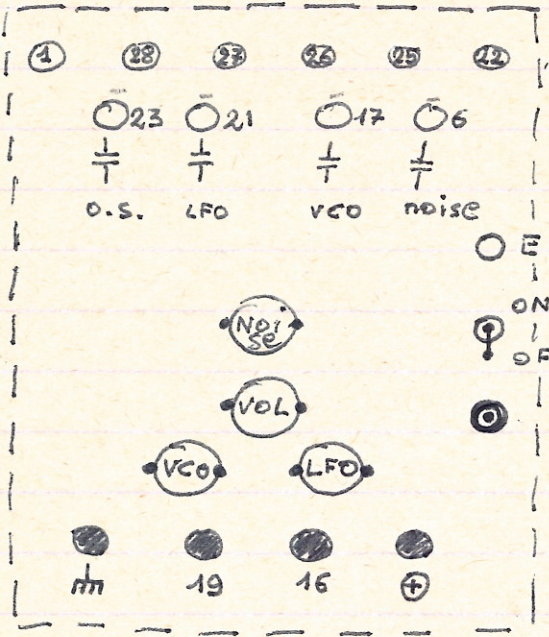 1 28 27 26 25 22
23 21 17 6
O.S. LFO VCO NOISE
E
ON
OF
NOI
SE
VOL
VCO LFO
19 16 +